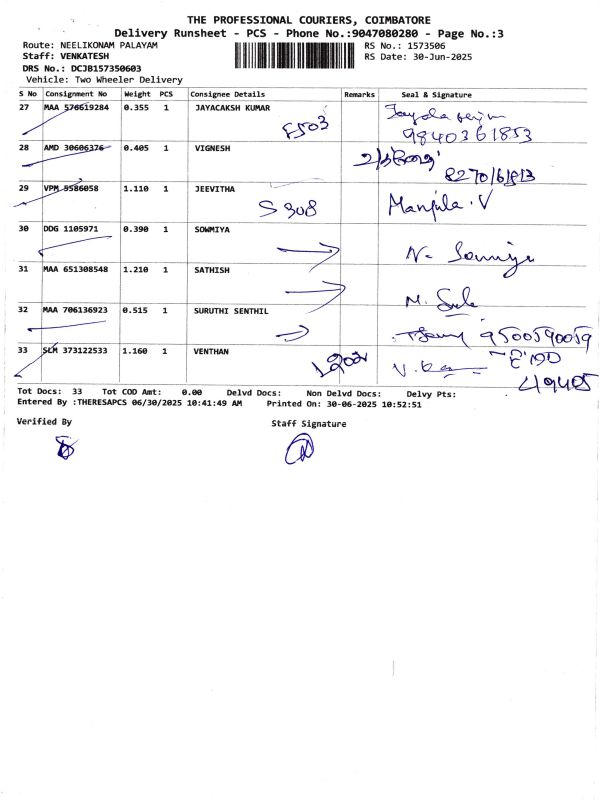 THE PROFESSIONAL COURIERS, COIMBATORE
Delivery Runsheet - PCS - Phone No.:9047080280 - Page No.:3
Route: NEELIKONAM PALAYAM RS No.: 1573506
Staff: VENKATESH RS Date: 30-Jun-2025
DRS No.: DCJB157350603
Vehicle: Two Wheeler Delivery
S No Consignment No Weight PCS Consignee Details Remarks Seal & Signature
27 MAA 576619284 0.355 1 JAYACAKSH KUMAR
F503 9840361853
28 AMD 30606376 0.405 1 VIGNESH
29 VPM 5586058 1.110 1 JEEVITHA
S 308 Manjula.V
30 DDG 1105971 0.390 1 SOWMIYA
N. Sowmiya
31 MAA 651308548 1.210 1 SATHISH
32 MAA 706136923 0.515 1 SURUTHI SENTHIL
9500590059
33 SLM 373122533 1.160 1 VENTHAN
Tot Docs: 33 Tot COD Amt: 0.00 Delvd Docs: Non Delvd Docs: Delvy Pts:
Entered By :THERESAPCS 06/30/2025 10:41:49 AM Printed On: 30-06-2025 10:52:51
Verified By Staff Signature